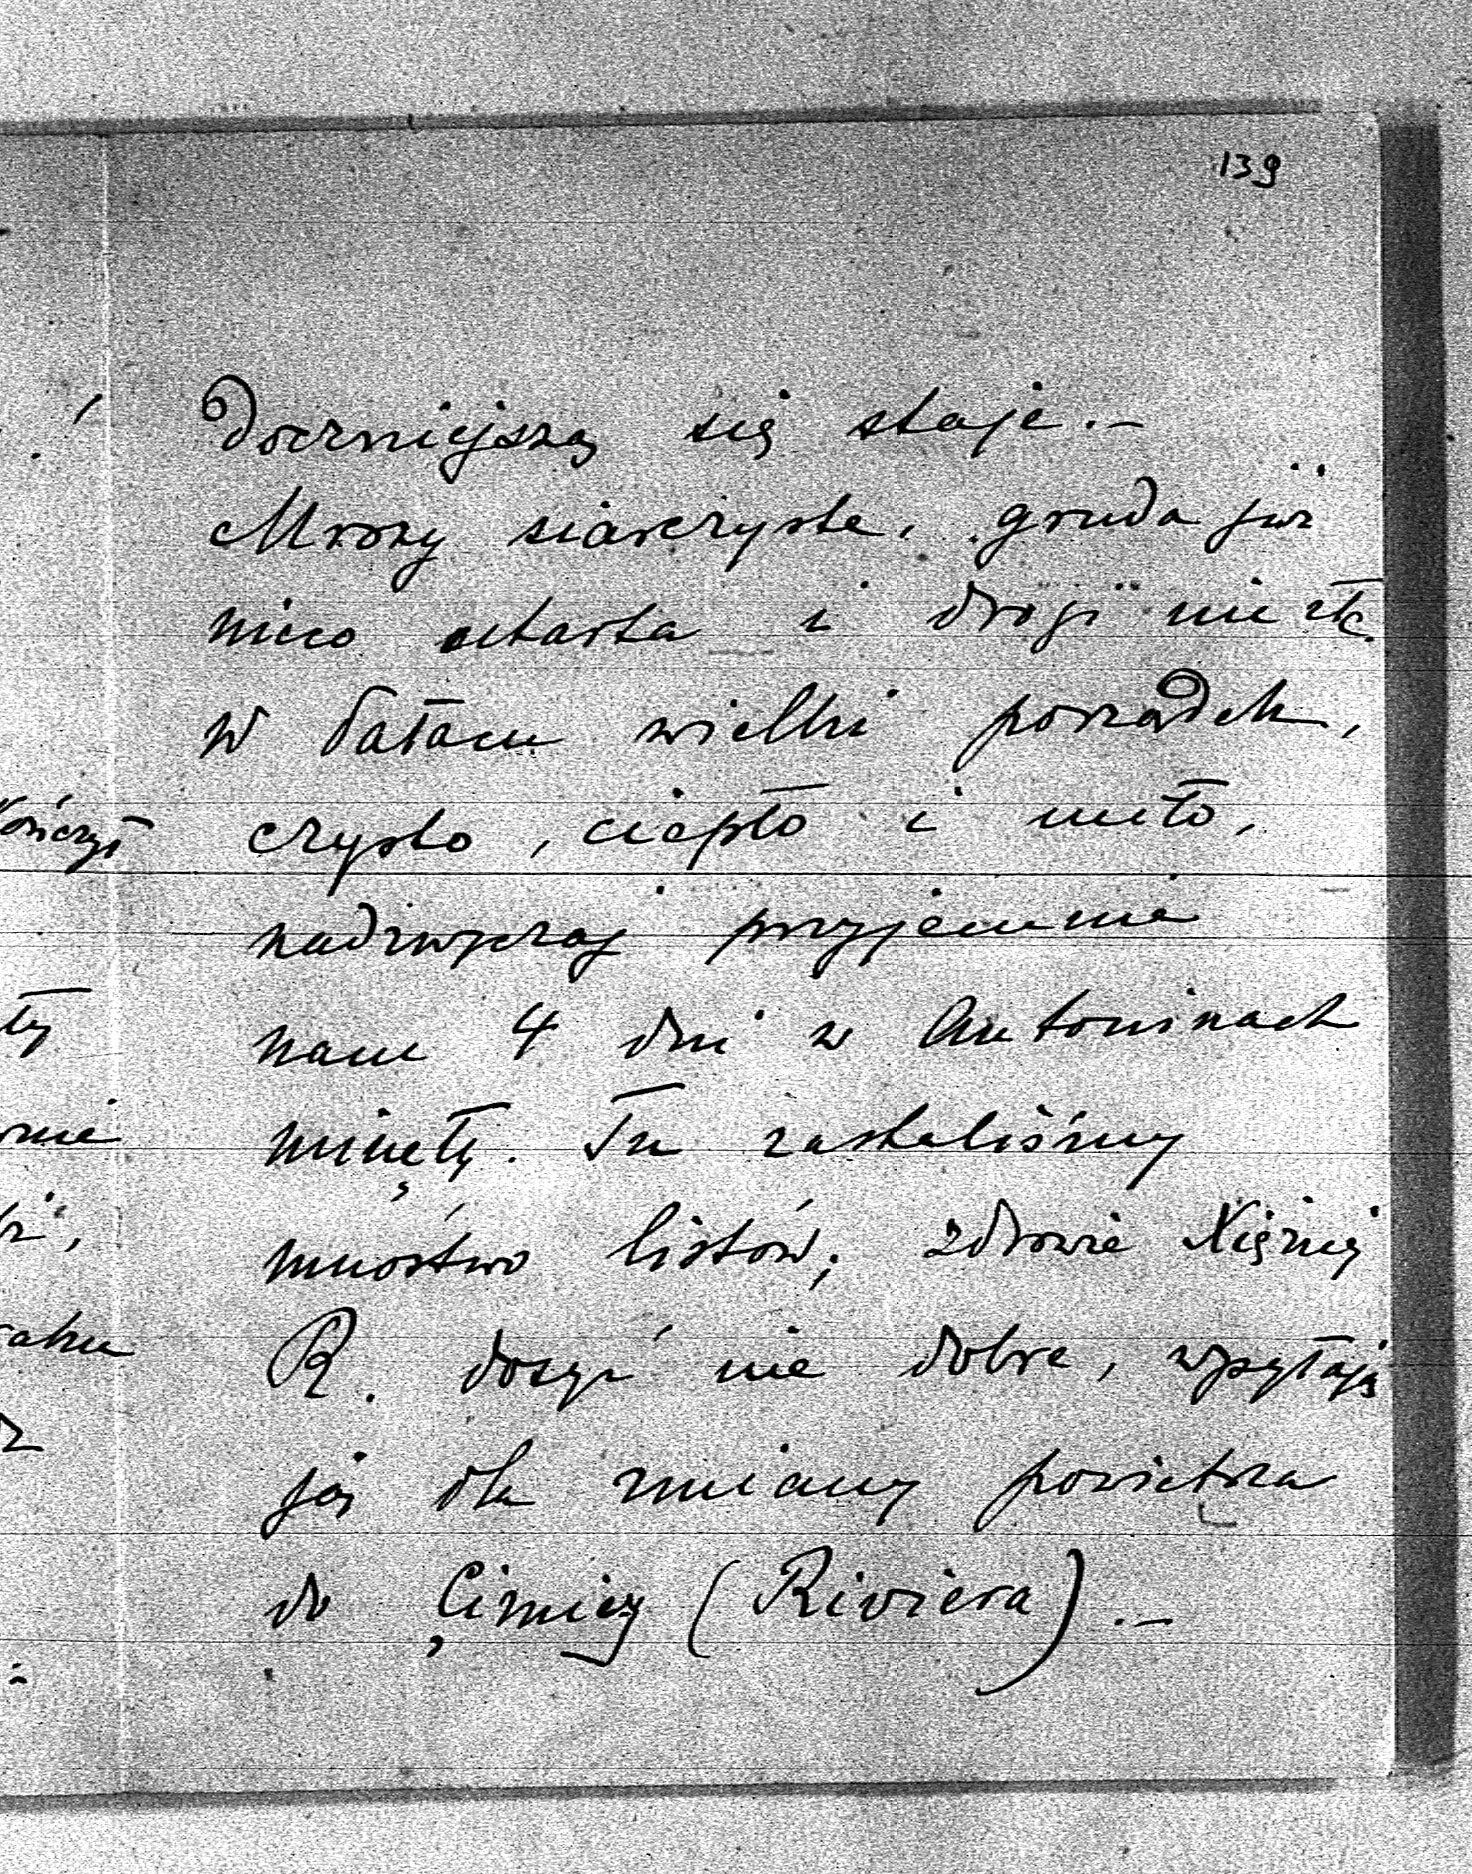 139
Doczniejszą się staje.–
Mrozy siarczyste, gruda już
nieco utarta i drogi nie złe.
W Pałacu wielki porządek,
czysto, ciepło i miło,
nadzwyczaj przyjemnie
nam 4 dni w Antoninach
minęły. Tu zastaliśmy
mnóstwo listów; zdrowie Xiężnej
R. dosyć nie dobre, wysyłają
ją dla zmiany powietrza
do Cimiez (Riviera).–